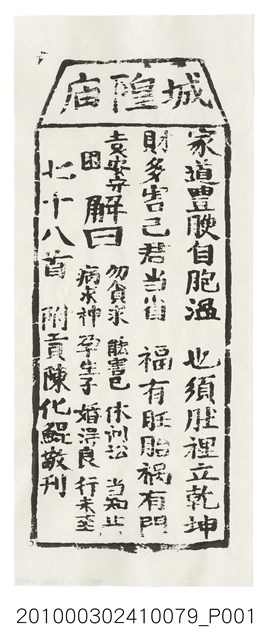 城隍庙
家道豊腴自飽溫 也須肚裡立乾坤
財多害己君當省 福有胚胎禍有門
袁安守困
解曰
勿貪求 能害己 休訓訟 当知止
病求神 孕生子 婚得良 行未至
七十八首 附貢陳化鯤敬刊
201000302410079_P001